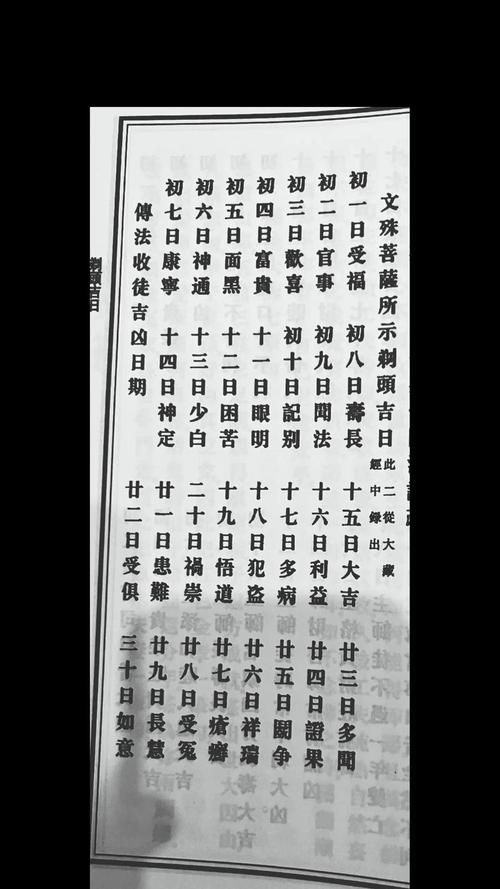 文殊菩薩所示剃頭吉日 此二從大藏
經中録出
初一日受福 初八日壽長 十五日大吉 廿三日多聞
初二日官事 初九日聞法 十六日利益 廿四日證果
初三日歡喜 初十日記别 十七日多病 廿五日鬪争
初四日富貴 十一日眼明 十八日犯盗 廿六日祥瑞
初五日面黑 十二日困苦 十九日悟道 廿七日瘡癬
初六日神通 十三日少白 二十日禍崇 廿八日受冤
初七日康寧 十四日神定 廿一日患難 廿九日長慧
傳法收徒吉凶日期 廿二日受俱 三十日如意
剃頭吉日